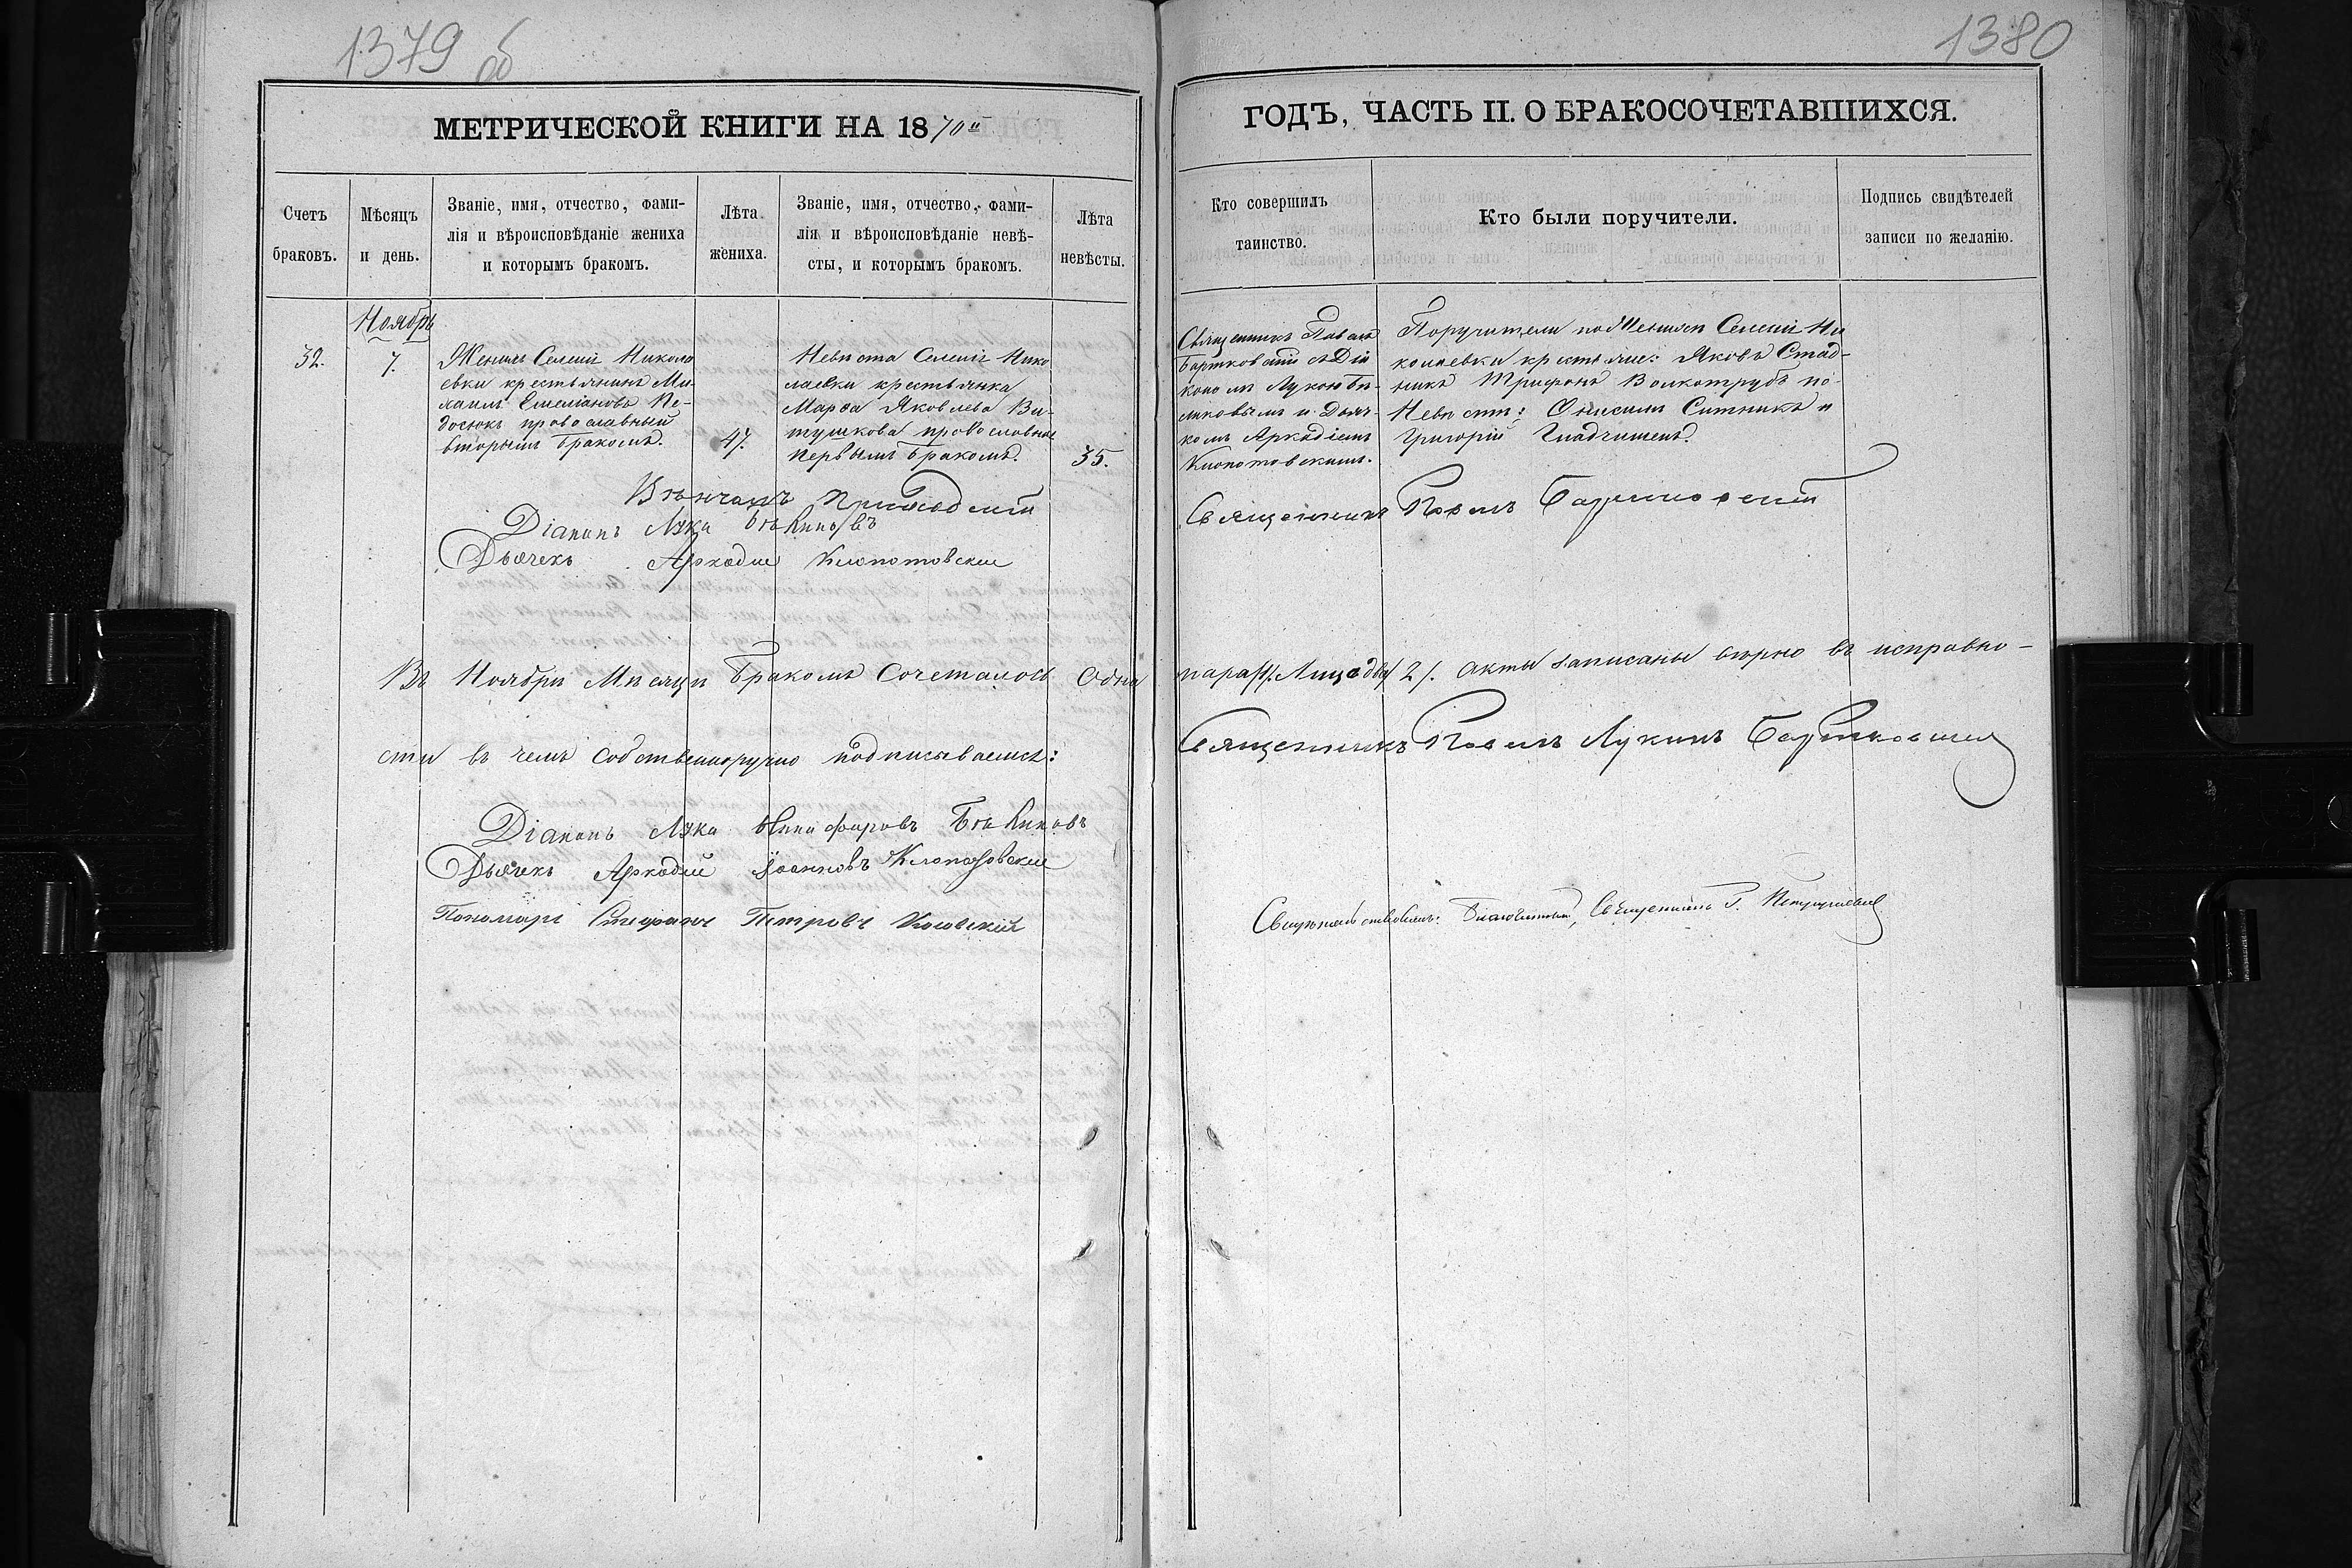 1379 об
1380
МЕТРИЧЕСКОЙ КНИГИ НА 1870й
ГОДЪ, ЧАСТЬ II. О БРАКОСОЧЕТАВШИХСЯ.
Счетъ
браковъ.
Мѣсяцъ
и день.
Званіе, имя, отчество, фами-
лія и вѣроисповѣданіе жениха
и которымъ бракомъ.
Лѣта
жениха.
Званіе, имя, отчество, фами-
лія и вѣроисповѣданіе невѣ-
сты, и которымъ бракомъ.
Лѣта
невѣсты.
Кто совершилъ
таинство.
Кто были поручители.
Подпись свидѣтелей
записи по желанію.
Ноябрь
32.
7.
Женихъ Селенія Никола
евки крестьянинъ Ми-
хаилъ Емеліановъ
православный
вторымъ бракомъ.
47.
Невѣста Селенія Нико
лаевки крестьянка
Марѳа Яковлева Ви-
тушкова православная
первымъ бракомъ.
35.
Священникъ Павелъ
Бартковскій съ Діа
кономъ Лукою Бѣ-
ликовымъ и Дьяч-
комъ Аркадіемъ
Клопотовскимъ.
Поручители по Женихѣ Селенія Ни
колаевки крестьяне: Яковъ Стад-
никъ Трифонъ Волкотрубъ по
Невѣстѣ: Онисимъ Ситникъ и
Григорій
Вѣнчалъ Приходскій
Священникъ Павелъ Бартковскій
Діаконъ Лука
Дьячекъ Аркадій Клопотовскій
Въ Ноябрѣ Мѣсяцѣ Бракомъ Сочеталось Одна
пара /1/. Лицъ два 2/. Акты записаны вѣрно въ исправно-
сти въ чемъ собственноручно подписываемся:
Священникъ Павелъ Лукинъ Бартковскій
Діаконъ Лука Никифоровъ
Дьячекъ Аркадій Іоанновъ Клопотовскій
Пономарь Стефанъ Петровъ Косовскій
Свидѣтельствовалъ: Благочинный, Священникъ Г.